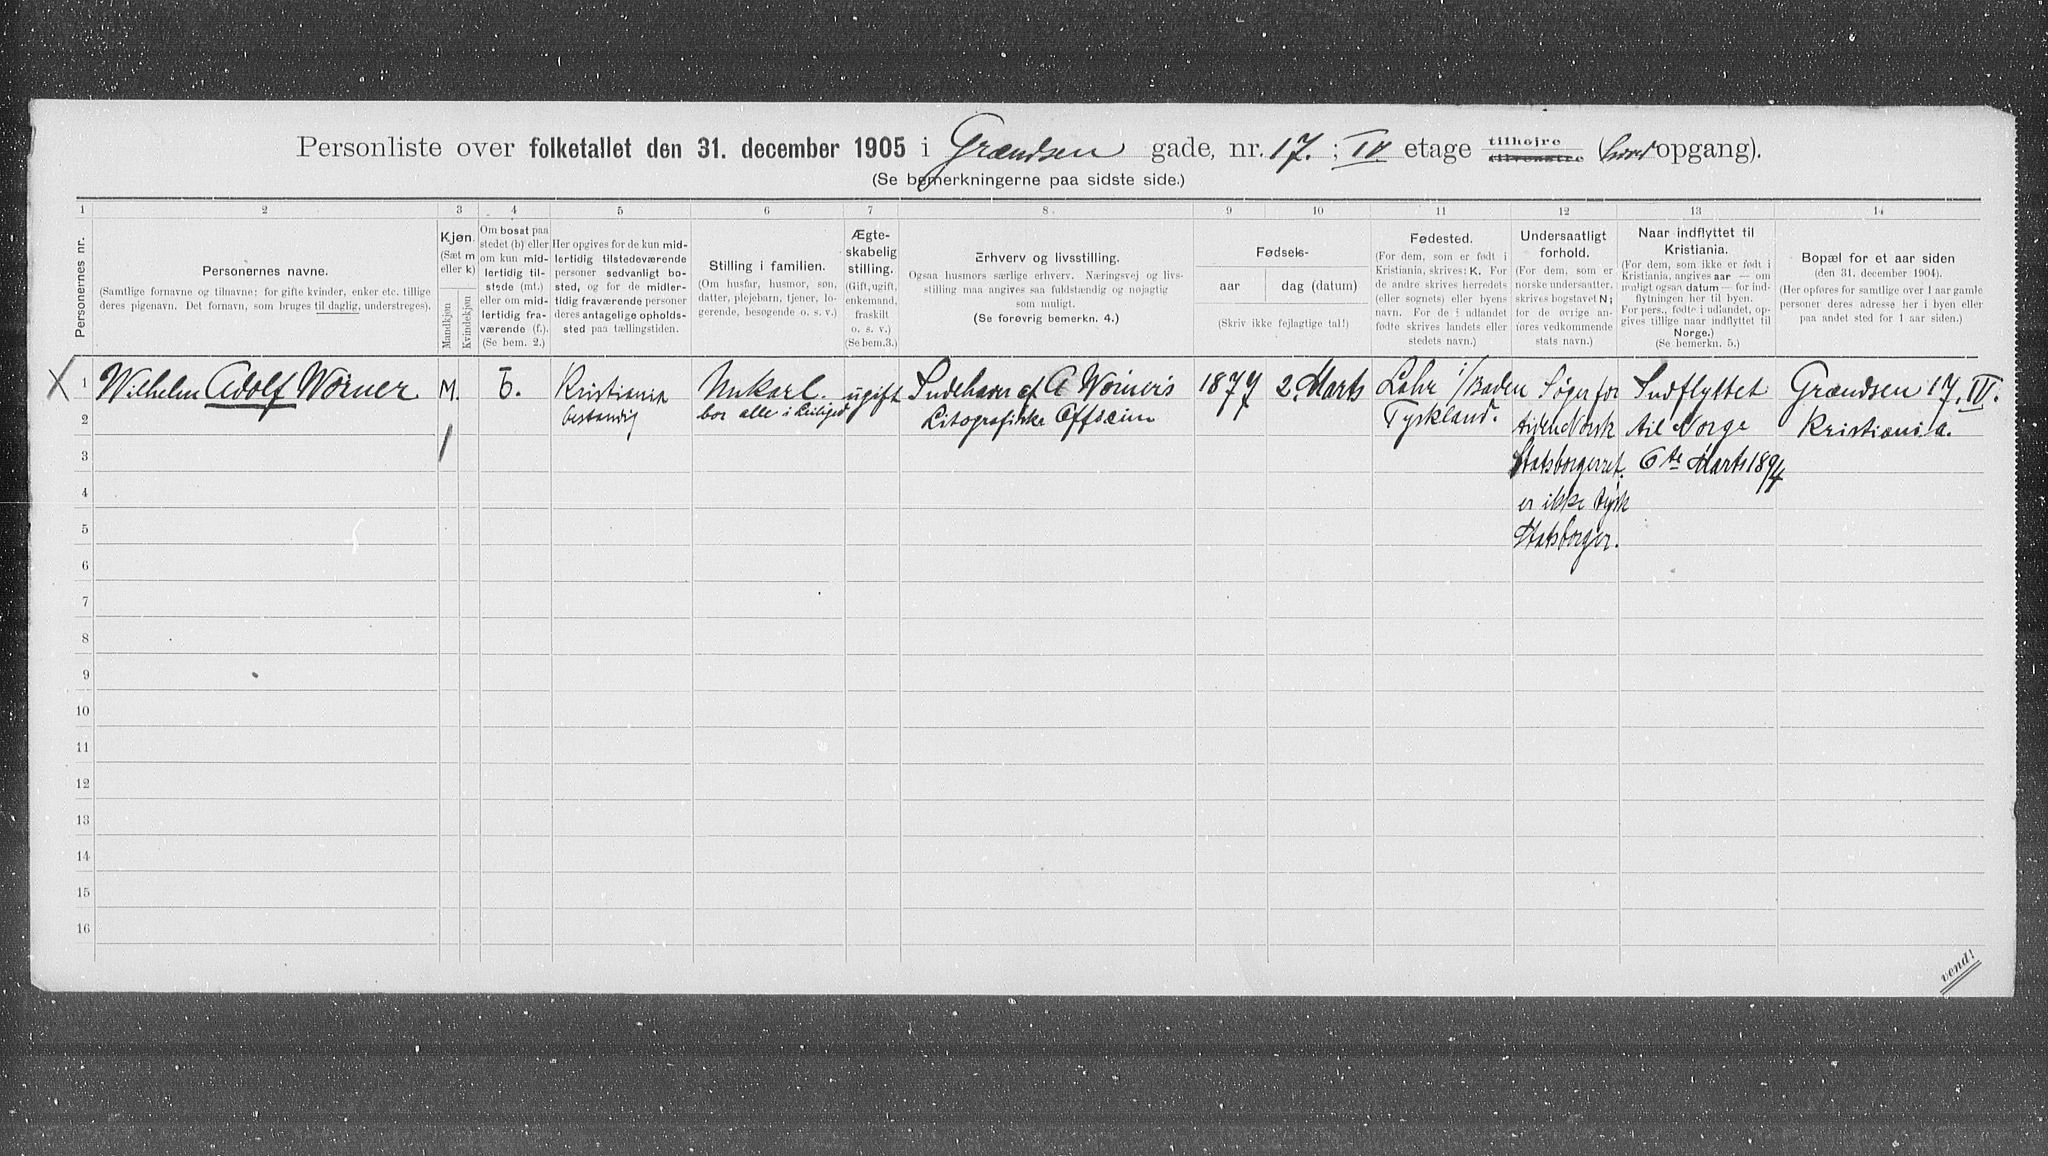 Personliste over folketallet den 31. december 1905 i Grændsen gade, nr. 17. ; IV etage tilhøjre tilvenstre ( opgang).
(Se bemerkningerne paa sidste side.)
1 2 3 4 5 6 7 8 9 10 11 12 13 14
Personernes nr.
Personernes navne.
(Samtlige fornavne og tilnavne; for gifte kvinder, enker etc. tillige
deres pigenavn. Det fornavn, som bruges til daglig, understreges).
Kjøn.
(Sæt m
eller k)
Mandkjøn
Kvindekjøn
Om bosat paa
stedet (b) eller
om kun mid-
lertidig til-
stede (mt.)
eller om mid-
lertidig fra-
værende (f.).
(Se bem. 2.)
Her opgives for de kun mid-
lertidig tilstedeværende
personer sedvanligt bo-
sted, og for de midler-
tidig fraværende personer
deres antagelige opholds-
sted paa tællingstiden.
Stilling i familien.
(Om husfar, husmor, søn,
datter, plejebarn, tjener, lo-
gerende, besøgende o. s. v.)
Ægte-
skabelig
stilling.
(Gift, ugift,
enkemand,
fraskilt
o. s. v.)
(Se bem.3.)
Erhverv og livsstilling.
Ogsaa husmors særlige erhverv. Næringsvej og livs-
stilling maa angives saa fuldstændig og nøjagtig
som muligt.
(Se forøvrig bemerkn. 4.)
Fødsels-
aar dag (datum)
(Skriv ikke fejlagtige tal!)
Fødested.
(For dem, som er født i
Kristiania, skrives: K. For
de andre skrives herredets
(eller sognets) eller byens
navn. For de i udlandet
fødte skrives landets eller
stedets navn.)
Undersaatligt
forhold.
(For dem, som er
norske undersaatter,
skrives bogstavet N;
for de øvrige an-
føres vedkommende
stats navn.)
Naar indflyttet til
Kristiania.
(For dem, som ikke er født i
Kristiania, angives aar — om
muligt ogsaa datum — for ind-
flytningen her til byen.
For pers., fødte i udlandet, op-
gives tillige naar indflyttet til
Norge.)
(Se bemerkn. 5.)
Bopæl for et aar siden
(den 31. december 1904).
(Her opføres for samtlige over 1 aar gamle
personer deres adresse her i byen eller
paa andet sted for 1 aar siden.)
X 1 Wilhelm Adolf Wörner M. b. Kristiania Ungkarl. ugift Indehaver af A Wörner's 1877 2. Marts Lahr i/Baden Søger for Indflyttet Grændsen 17. IV.
2 bestandig bor alle i Litografiske Officin Tyskland. tiden Norsk til Norge Kristiania.
3 Statsborgerret. 6te Marts 1894
4 er ikke tysk
5 Statsborger.
6
7
8
9
10
11
12
13
14
15
16
vend!